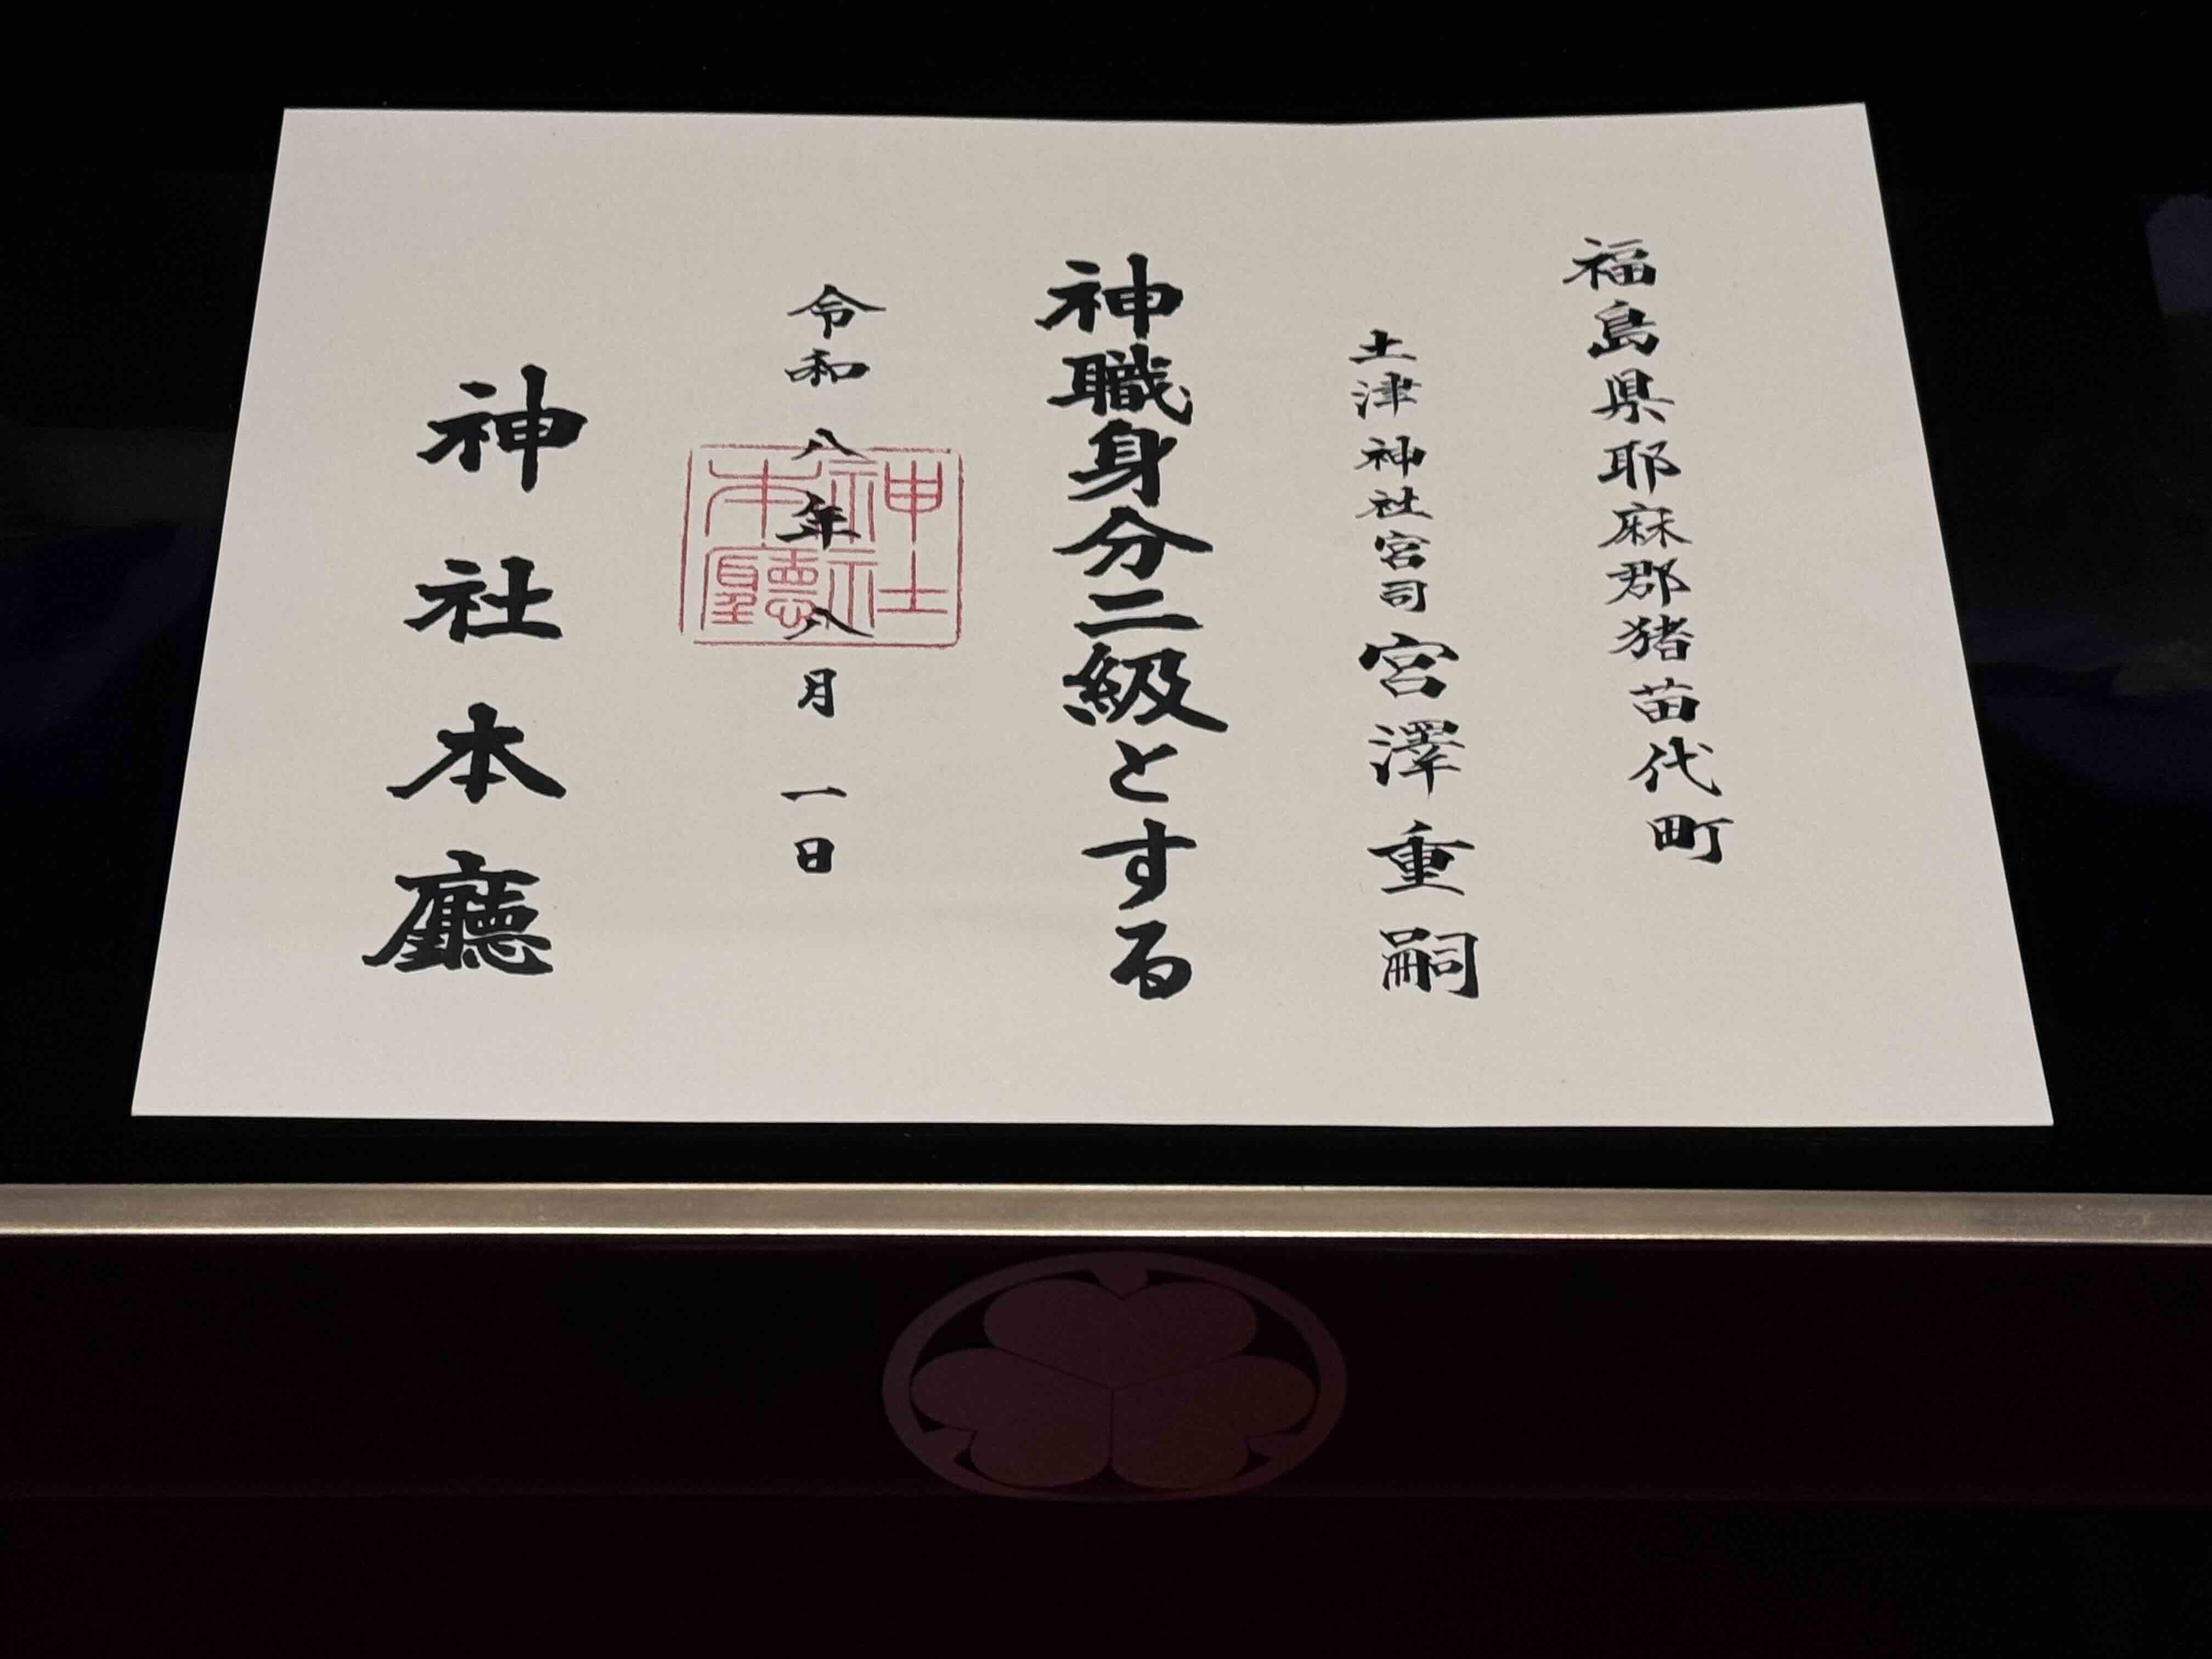 福島県耶麻郡猪苗代町
土津神社宮司宮澤重嗣
神職身分二級とする
令和八年八月一日
神社本廳
神社本廳